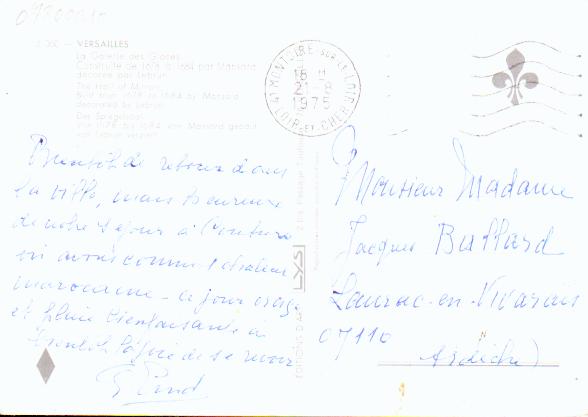 3 260 — VERSAILLES
La Galerie des Glaces
Construite de 1678 à 1684 par Mansard
décorée par Lebrun
The Hall of Mirrors
Built from 1678 to 1684 by Mansard
decorated by Lebrun
Der Spiegelsaal
Von 1678 bis 1684 von Mansard gebaut
von Lebrun verziert
41 MONTOIRE-SUR-LE-LOIR
18 H
21-8
1975
LOIR-ET-CHER
EDITIONS D'ART LYS
Bientôt de retour dans
la ville, mais heureux
de notre séjour à Couture
où avons connu chaleur
marocaine - ce jour orage
et pluie bienfaisante à
bientôt la joie de se revoir
Monsieur Madame
Jacques Buffard
Laurac-en-Vivarais
07110
Ardèche)